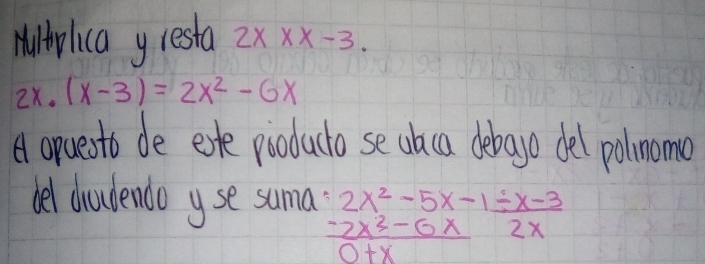 Multiplica y resta 2x x x - 3.
2x. (x-3) = 2x² - 6x
El opuesto de este producto se ubica debajo del polinomio
del dividendo y se suma: 2x² - 5x - 1 ÷ x - 3
-2x² - 6x 2x
0+x